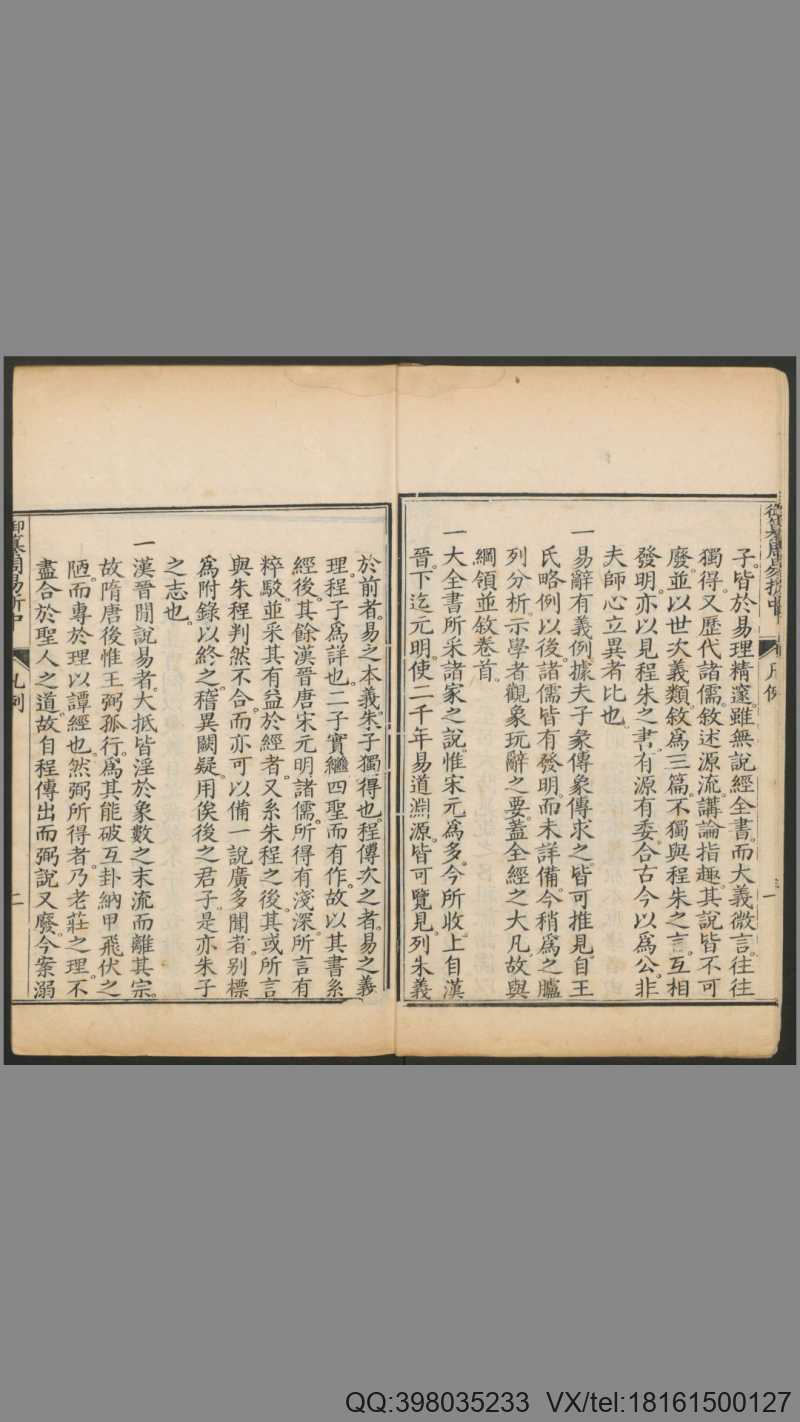 子。皆於易理精邃。雖無說經全書。而大義微言。往往
獨得。又歷代諸儒。敘述源流。講論指趣。其說皆不可
廢。並以世次義類。敘爲三篇。不獨與程朱之言。互相
發明。亦以見程朱之書。有源有委。合古今以爲公。非
夫師心立異者比也
一易辭有義例。據夫子彖傳象傳求之。皆可推見。自王
氏略例以後。諸儒皆有發明。而未詳備。今稍爲之臚
列分析。示學者觀象玩辭之要。蓋全經之大凡。故與
綱領並敘卷首。
一大全書所采諸家之說。惟宋元爲多。今所收。上自漢
晉。下迄元明。使二千年易道淵源。皆可覽見。列朱義
於前者。易之本義。朱子獨得也。程傳次之者。易之義
理。程子爲詳也。二子實繼四聖而有作。故以其書系
經後。其餘漢晉唐宋元明諸儒。所得有淺深。所言有
粹駮。並采其有益於經者。又系朱程之後。其或所言
與朱程判然不合。而亦可以備一說廣多聞者。別標
爲附錄以終之。稽異闕疑。用俟後之君子。是亦朱子
之志也。
一漢晉閒說易者。大抵皆淫於象數之末流而離其宗。
故隋唐後惟王弼孤行。爲其能破互卦納甲飛伏之
陋。而專於理以譚經也。然弼所得者。乃老莊之理。不
盡合於聖人之道。故自程傳出而弼說又廢。今案溺
御纂周易折中
凡例
二
QQ:398035233 VX/tel:18161500127